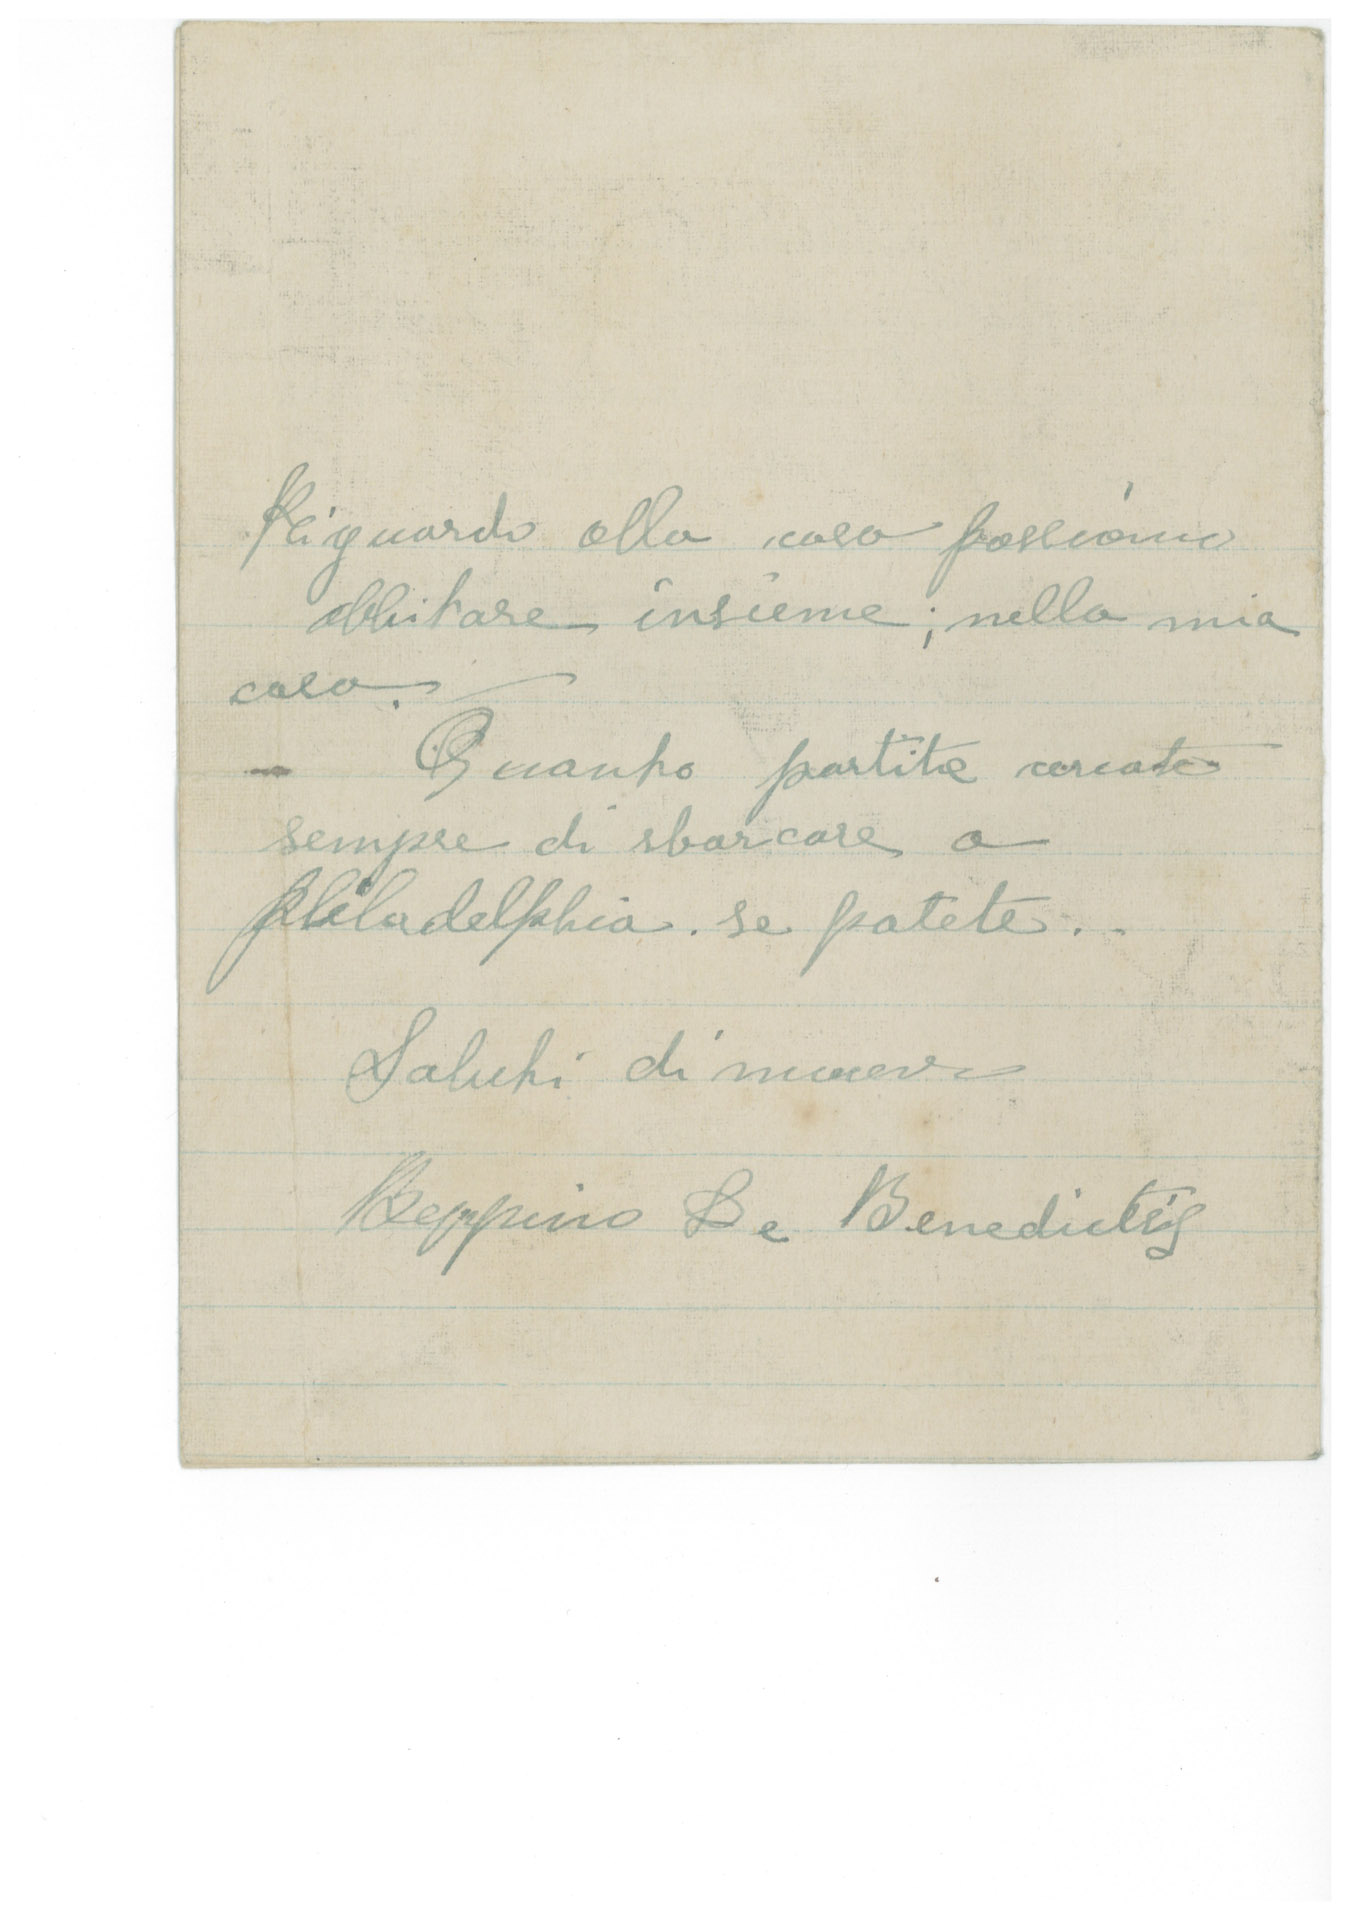 Riguardo alla casa possiamo
abbitare insieme; nella mia
casa.
- Quanto partite cercate
sempre di sbarcare a
Philadelphia. se potete..
Saluti di nuovo
Beppino De Benedictis